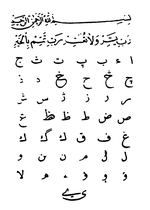 بسم الله الرحمن الرحيم
رب يسر ولا تعسر رب تمم بالخير
ا ء ب پ ت ث ج
چ ح خ د ذ
ر ز ژ س ش
ص ض ط ظ ع
غ ف ق ک گ
ل م ن و
ی ے